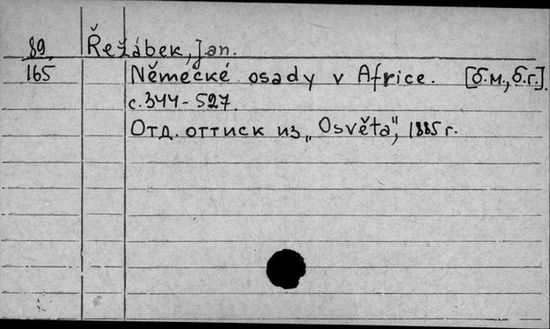 89 Řežábek, Jan.
165 Německé osady v Africe. [б.м., б.г.].
с. 344-527.
Отд. оттиск из „Osvěta", 1885 г.